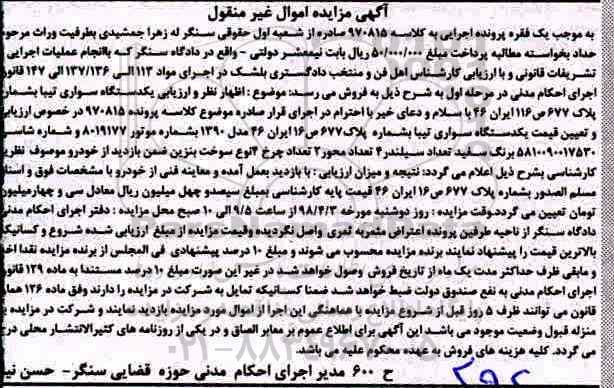 آگهی مزایده اموال غیر منقول
به موجب یک فقره پرونده اجرایی به کلاسه ۹۷۰۸۱۵ صادره از شعبه اول حقوقی سنگر له زهرا جمشیدی بطرفیت وراث مرحوم
حداد بخواسته مطالبه پرداخت مبلغ ۵۰/۰۰۰/۰۰۰ ریال بابت نیمعشر دولتی - واقع در دادگاه سنگر که باانجام عملیات اجرایی
تشریفات قانونی و با ارزیابی کارشناس اهل فن و منتخب دادگستری بلشک در اجرای مواد ۱۱۳ الی ۱۳۷/۱۳۶ الی ۱۴۷ قانون
اجرای احکام مدنی در مرحله اول به شرح ذیل به فروش می رسد: موضوع : اظهار نظر و ارزیابی یکدستگاه سواری تیبا بشماره
پلاک ۶۷۷ ص۱۱۶ ایران ۴۶ با سلام و دعای خیر با احترام در اجرای قرار صادره موضوع کلاسه پرونده ۹۷۰۸۱۵ در خصوص ارزیابی
و تعیین قیمت یکدستگاه سواری تیبا بشماره پلاک ۶۷۷ ص۱۶ ایران ۴۶ مدل ۱۳۹۰ بشماره موتور ۸۰۱۹۱۷۷ و شماره شاسی
۵۸۱۰۰۹۰۰۱۷۵۳۰ برنگ سفید تعداد سیلندر۴ تعداد محور۲ تعداد چرخ ۴نوع سوخت بنزین ضمن بازدید از خودرو موصوف نظریه
کارشناسی بشرح ذیل اعلام می گردد: نتیجه و میزان ارزیابی : با بازدید بعمل آمده و معاینه فنی از خودرو با مشخصات فوق و اسناد
مسلم الصدور بشماره پلاک ۶۷۷ ص۱۶ ایران ۴۶ قیمت پایه کارشناسی بمبلغ سیصدو چهل میلیون ریال معادل سی و چهارمیلیون
تومان تعیین می گردد.وقت مزایده : روز دوشنبه مورخه ۹۸/۴/۳ از ساعت ۹/۵ الی ۱۰ صبح محل مزایده : دفتر اجرای احکام مدنی
دادگاه سنگر از ناحیه طرفین پرونده اعتراض مثمربه ثمری واصل نگردیده وقیمت مزایده از مبلغ ارزیابی شده شروع و کسانیکه
بالاترین قیمت را پیشنهاد نمایند برنده مزایده محسوب می شوند و مبلغ ۱۰ درصد پیشنهادی فی المجلس از برنده مزایده نقدا اخذ
و مابقی ظرف حداکثر مدت یک ماه از تاریخ فروش وصول خواهد شد در غیر این صورت مبلغ ۱۰ درصد مستندا به ماده ۱۲۹ قانون
اجرای احکام مدنی به نفع صندوق دولت ضبط خواهد شد ضمنا کسانیکه تمایل به شرکت در مزایده را دارند وفق ماده ۱۲۶ همان
قانون می توانند ظرف ۵ روز قبل از شروع مزایده با هماهنگی این اجرا از اموال مورد مزایده بازدید نمایند و شرکت در مزایده به
منزله قبول وضعیت موجود می باشد.این آگهی برای اطلاع عموم بر معابر الصاق و در یکی از روزنامه های کثیرالانتشار محلی درج
می گردد. کلیه هزینه های فروش به عهده محکوم علیه می باشد.
ح ۶۰۰ مدیر اجرای احکام مدنی حوزه قضایی سنگر- حسن